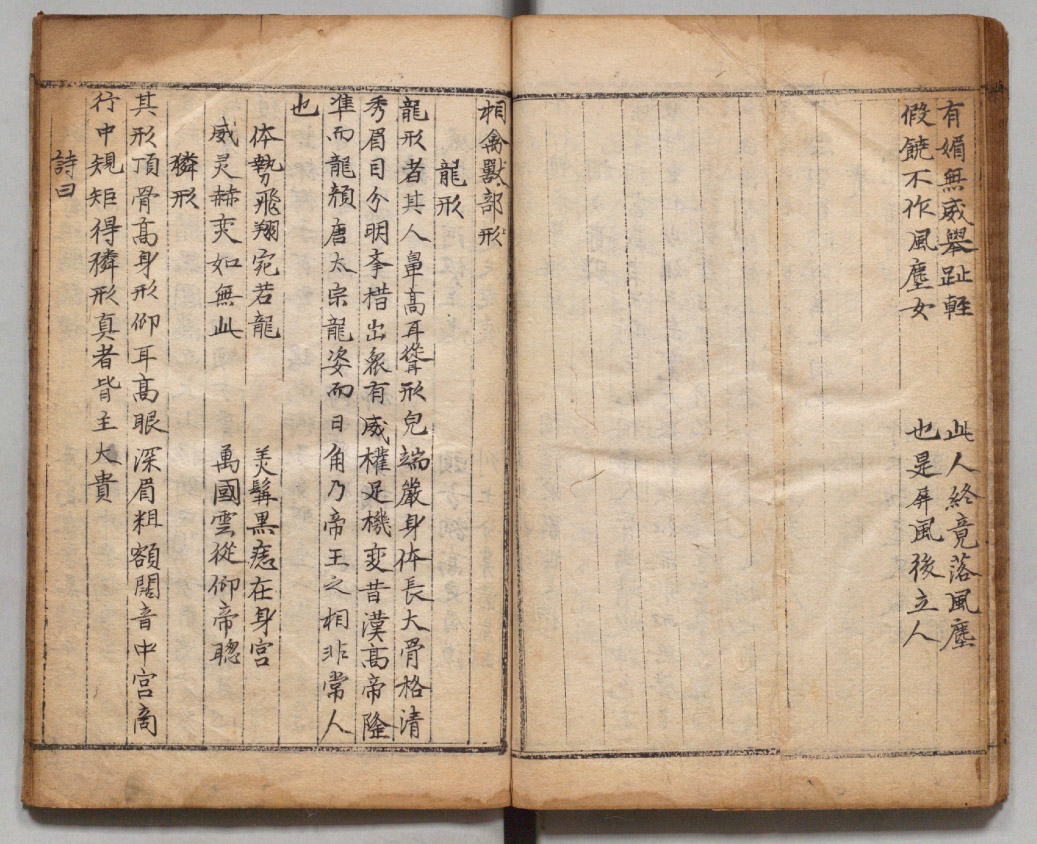 有媚無威舉趾輕　此人終竟落風塵
假饒不作風塵女　也是屏風後立人
相禽獸部形
龍形
龍形者其人鼻高耳聳形皃端嚴身体長大骨格清
秀眉目分明挙措出衆有威權足機変昔漢高帝隆
準而龍顔唐太宗龍姿而日角乃帝王之相非常人
也
体勢飛翔宛若龍　美髯黒痣在身宫
威灵赫奕如無此　萬國雲從仰帝聦
獜形
其形頂骨高身形仰耳高眼深眉粗額闊音中宫商
行中規矩得獜形真者皆主大貴
詩曰